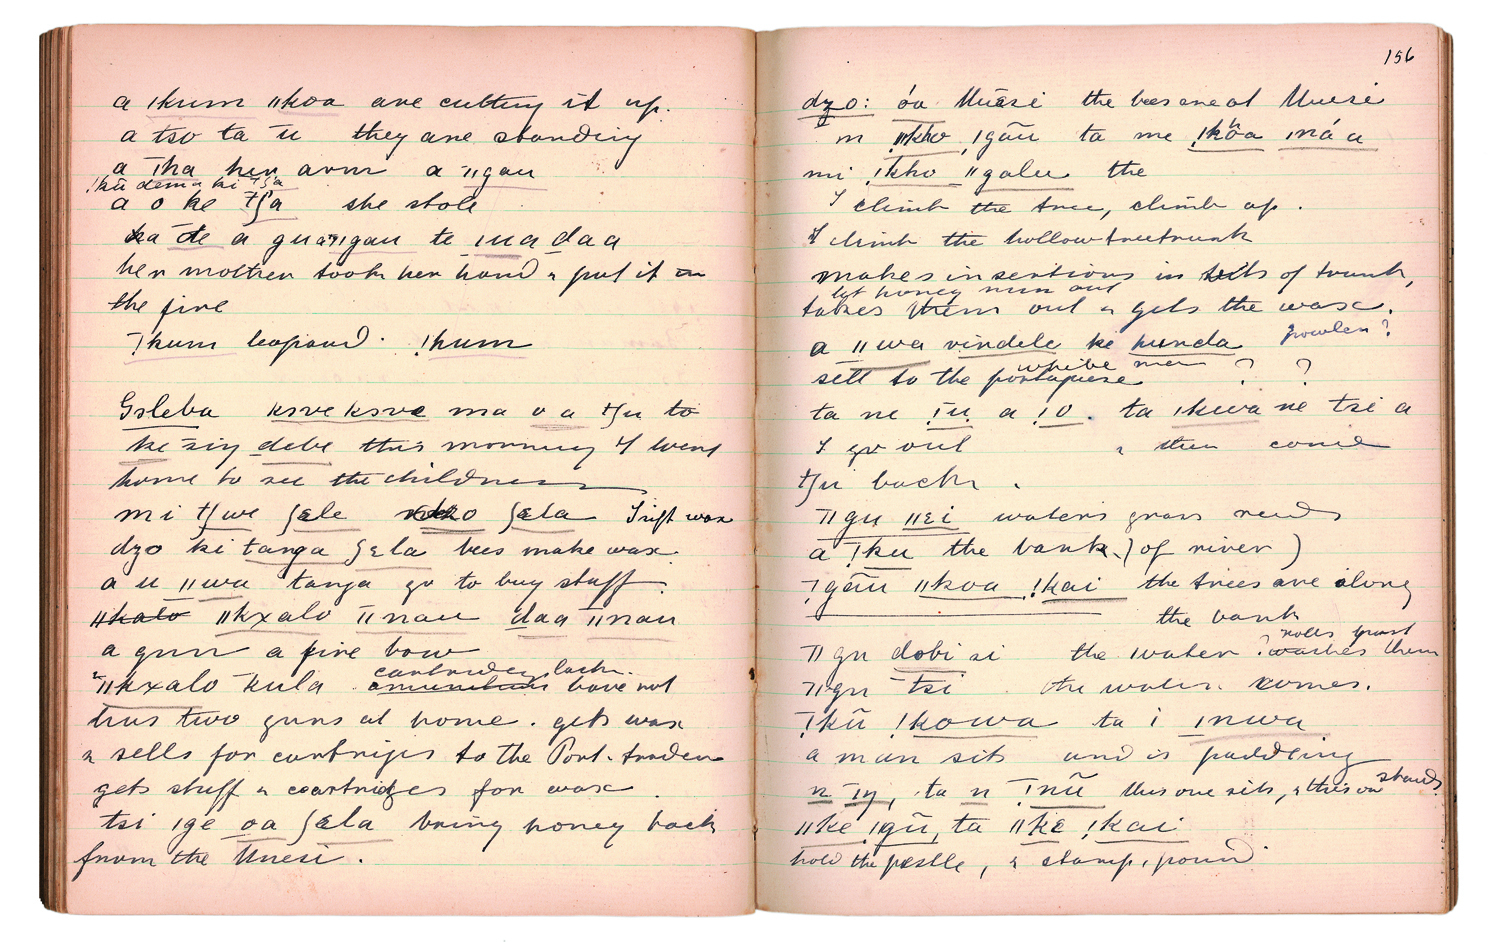 a ǀkum ǁkoa are cutting it up.
a tso ta ū they are standing
a ǃha her arm a ǁgau
ǃkū dema ki tʃa
a o ke tʃa she stole
ka de a gu ǀgau te ǀua daa
her mother took her hand & put it on
the fire
ǃkum leopard. ǃhum
Gsleba ksve ksve ma o a tʃu to
ke siŋ debe this morning I went
home to see the children
mi tʃwe ʃɛle ʃɛla I sift wax
dzo ki tanga ʃɛla bees make wax.
a u ǁwa tanga go to buy stuff.
ǁkalo ǁkxalo ǁnau daa ǁnau
a gun a fire bow
cartridges lack.
ǁkxalo kula amunition have not
has two guns at home. gets wax
& sells for cartriges to the Port. trader
gets stuff & cartridges for wax.
tsi ǀge oa ʃɛla bring honey back
from the Uuesi.
156
dzo: óa Uuesi the bees are at Uuesi
m ǁkho ǀgāu ta me ǃkhōa ǀná a
mi ǃkho ǁgalu the
I climb the tree, climb up.
I climb the hollow treetrunk
makes insertions in of trunk,
lgt honey run out
takes them out & gets the wax.
a ǁwa vindele ke hunda growler?
white men
sell to the portuguese ? ?
ta ne ǃu a ǃo. ta ǀkwa ne tsi a
I go out & then come
tʃu back.
ǁgu ǁɛi waters grass reeds
a ǃku the bank (of river)
ǃgāu ǁkoa ǃkai the trees are along
the bank
ǁgu dobi si the water ? washes them
ǁgu tsi the water comes.
ǃkū ǃkowa ta i ǀnwa
a man sits and is paddling
n ǃŋ, ta n ǃnū this one sits, & this one stands.
ǁke ǀgū, ta ǁkɛ ǃkai
hold the pestle, & stamp, pound